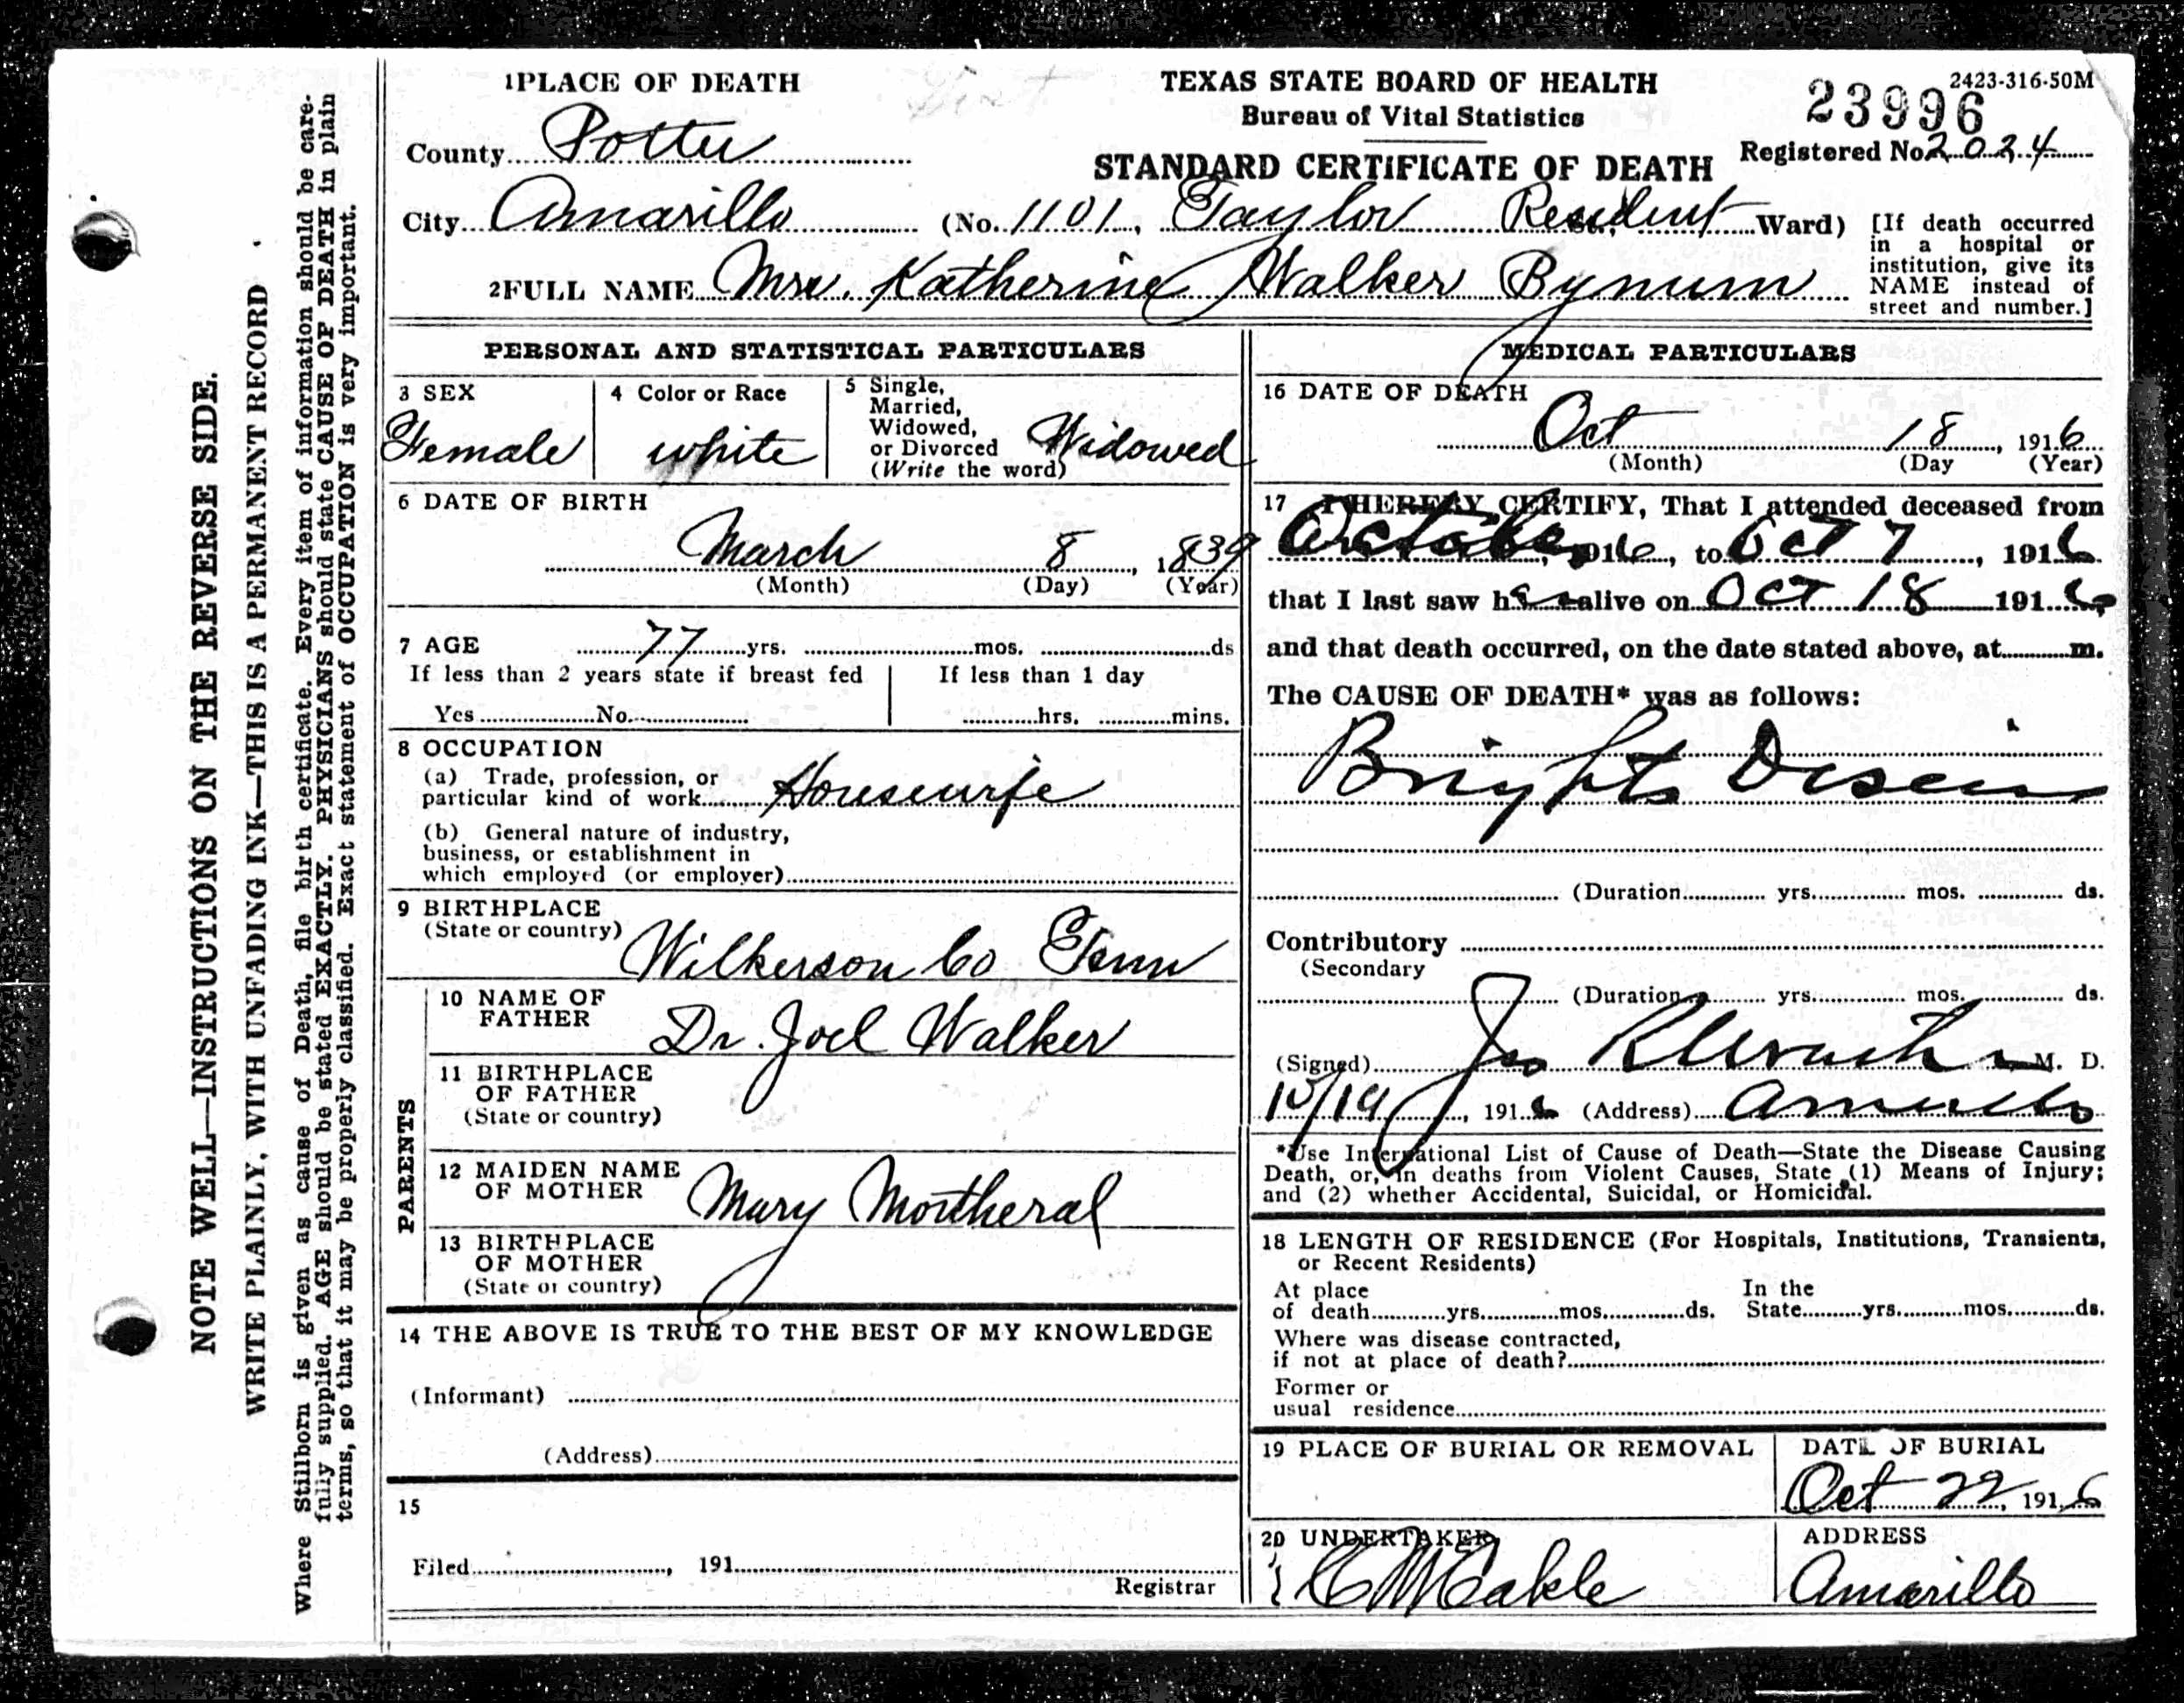 NOTE WELL—INSTRUCTIONS ON THE REVERSE SIDE.
WRITE PLAINLY, WITH UNFADING INK—THIS IS A PERMANENT RECORD
Where Stillborn is given as cause of Death, file birth certificate. Every item of information should be care-
fully supplied. AGE should be stated EXACTLY. PHYSICIANS should state CAUSE OF DEATH in plain
terms, so that it may be properly classified. Exact statement of OCCUPATION is very important.
1PLACE OF DEATH
County Potter
City Amarillo
TEXAS STATE BOARD OF HEALTH
Bureau of Vital Statistics
STANDARD CERTIFICATE OF DEATH
2423-316-50M
23996
Registered No. 2024
(No. 1101, Taylor St., Resident Ward)
[If death occurred
in a hospital or
institution, give its
NAME instead of
street and number.]
2FULL NAME Mrs. Katherine Walker Bynum
PERSONAL AND STATISTICAL PARTICULARS
3 SEX
Female
4 Color or Race
white
5 Single,
Married,
Widowed,
or Divorced
(Write the word)
Widowed
6 DATE OF BIRTH
March 8, 1839
(Month) (Day) (Year)
7 AGE 77 yrs. mos. ds
If less than 2 years state if breast fed
Yes No.
If less than 1 day
hrs. mins.
8 OCCUPATION
(a) Trade, profession, or
particular kind of work Housewife
(b) General nature of industry,
business, or establishment in
which employed (or employer)
9 BIRTHPLACE
(State or country) Wilkerson Co Tenn
PARENTS
10 NAME OF
FATHER Dr. Joel Walker
11 BIRTHPLACE
OF FATHER
(State or country)
12 MAIDEN NAME
OF MOTHER Mary Mortheral
13 BIRTHPLACE
OF MOTHER
(State or country)
14 THE ABOVE IS TRUE TO THE BEST OF MY KNOWLEDGE
(Informant)
(Address)
15
Filed , 191
Registrar
MEDICAL PARTICULARS
16 DATE OF DEATH
Oct 18, 1916
(Month) (Day (Year)
17 I HEREBY CERTIFY, That I attended deceased from
October, 1916, to Oct 7, 1916
that I last saw her alive on Oct 18 1916
and that death occurred, on the date stated above, at m.
The CAUSE OF DEATH* was as follows:
Brights Disease
(Duration yrs. mos. ds.
Contributory
(Secondary
(Duration yrs. mos. ds.
(Signed) Jas M. D.
10/19, 1916 (Address) Amarillo
*Use International List of Cause of Death—State the Disease Causing
Death, or, in deaths from Violent Causes, State (1) Means of Injury;
and (2) whether Accidental, Suicidal, or Homicidal.
18 LENGTH OF RESIDENCE (For Hospitals, Institutions, Transients,
or Recent Residents)
At place
of death yrs. mos. ds.
In the
State yrs. mos. ds.
Where was disease contracted,
if not at place of death?
Former or
usual residence
19 PLACE OF BURIAL OR REMOVAL
DATE OF BURIAL
Oct 22, 1916
20 UNDERTAKER
C M Eakle
ADDRESS
Amarillo